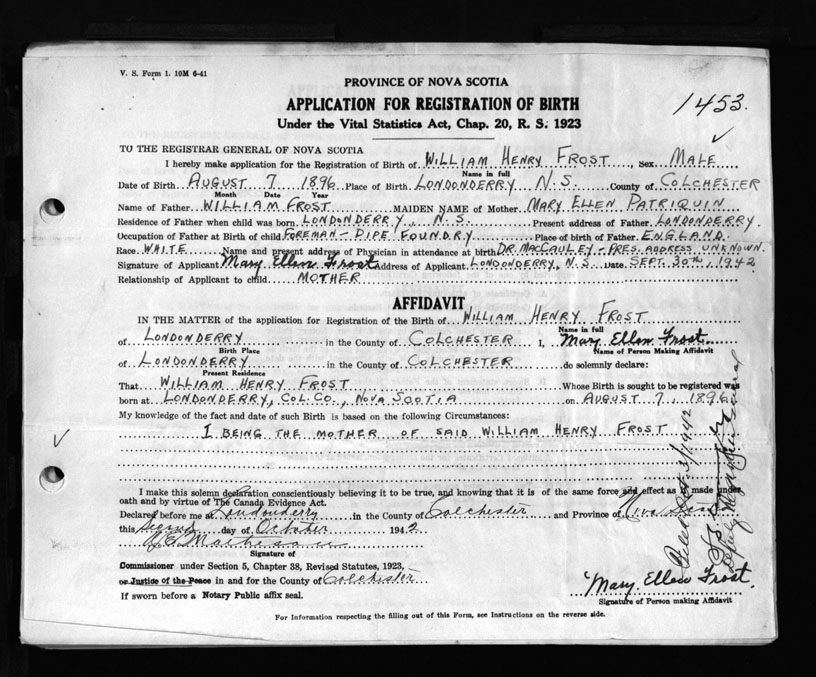 V. S. Form 1. 10M 6-41
PROVINCE OF NOVA SCOTIA
APPLICATION FOR REGISTRATION OF BIRTH
Under the Vital Statistics Act, Chap. 20, R. S. 1923
1453
TO THE REGISTRAR GENERAL OF NOVA SCOTIA
I hereby make application for the Registration of Birth of WILLIAM HENRY FROST, Sex MALE
Name in full
Date of Birth AUGUST 7 1896 Place of Birth LONDONDERRY N.S. County of COLCHESTER
Month Date Year
Name of Father WILLIAM FROST MAIDEN NAME of Mother MARY ELLEN PATRIQUIN
Residence of Father when child was born LONDONDERRY, N.S. Present address of Father LONDONDERRY
Occupation of Father at Birth of child FOREMAN - PIPE FOUNDRY Place of birth of Father ENGLAND
Race WHITE Name and present address of Physician in attendance at birth DR. MACCAULEY - PRES. ADDRESS UNKNOWN.
Signature of Applicant Mary Ellen Frost Address of Applicant LONDONDERRY, N.S. Date SEPT. 30th, 1942
Relationship of Applicant to child MOTHER
AFFIDAVIT
IN THE MATTER of the application for Registration of the Birth of WILLIAM HENRY FROST
Name in full
of LONDONDERRY in the County of COLCHESTER I, Mary Ellen Frost
Birth Place Name of Person Making Affidavit
of LONDONDERRY in the County of COLCHESTER do solemnly declare:
Present Residence
That WILLIAM HENRY FROST Whose Birth is sought to be registered was
born at LONDONDERRY, COL. CO., NOVA SCOTIA on AUGUST 7, 1896.
My knowledge of the fact and date of such Birth is based on the following Circumstances:
I BEING THE MOTHER OF SAID WILLIAM HENRY FROST
I make this solemn declaration conscientiously believing it to be true, and knowing that it is of the same force and effect as if made under
oath and by virtue of The Canada Evidence Act.
Declared before me at Londonderry in the County of Colchester and Province of Nova Scotia
this Second day of October 1942
Signature of
Commissioner under Section 5, Chapter 38, Revised Statutes, 1923,
or Justice of the Peace in and for the County of Colchester
If sworn before a Notary Public affix seal.
Mary Ellen Frost
Signature of Person making Affidavit
For Information respecting the filling out of this Form, see Instructions on the reverse side.